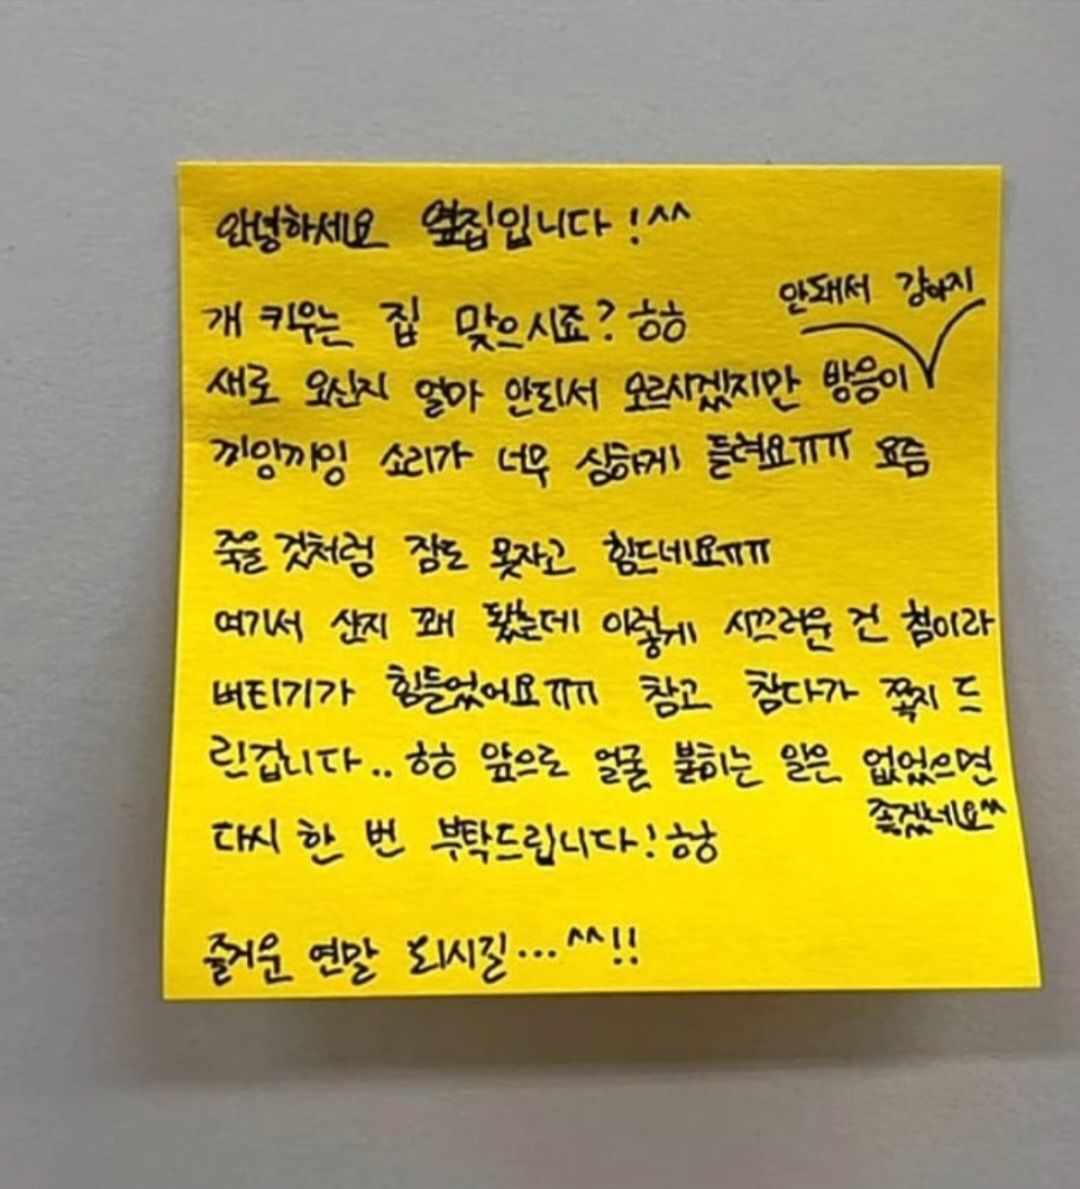 안녕하세요 옆집입니다!^^
개 키우는 집 맞으시죠? ㅎㅎ
새로 오신지 얼마 안되서 모르시겠지만 방음이
안돼서 강아지
끼잉끼잉 소리가 너무 심하게 들려요ㅠㅠ 요즘
죽을 것처럼 잠도 못자고 힘드네요ㅠㅠ
여기서 산지 꽤 됐는데 이렇게 시끄러운 건 첨이라
버티기가 힘들었어요ㅠㅠ 참고 참다가 쪽지 드
린겁니다.. ㅎㅎ 앞으로 얼굴 붉히는 일은 없었으면
좋겠네요^^
다시 한 번 부탁드립니다! ㅎㅎ
즐거운 연말 되시길...^^!!